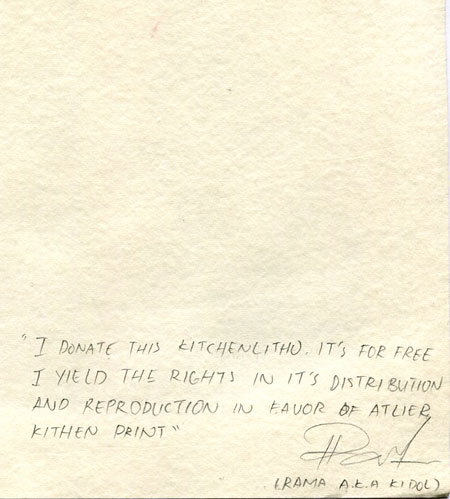 "I DONATE THIS KITCHENLITHO. IT'S FOR FREE
I YIELD THE RIGHTS IN IT'S DISTRIBUTION
AND REPRODUCTION IN FAVOR OF ATLIER
KITHEN PRINT"
(RAMA A.K.A KIDOL)